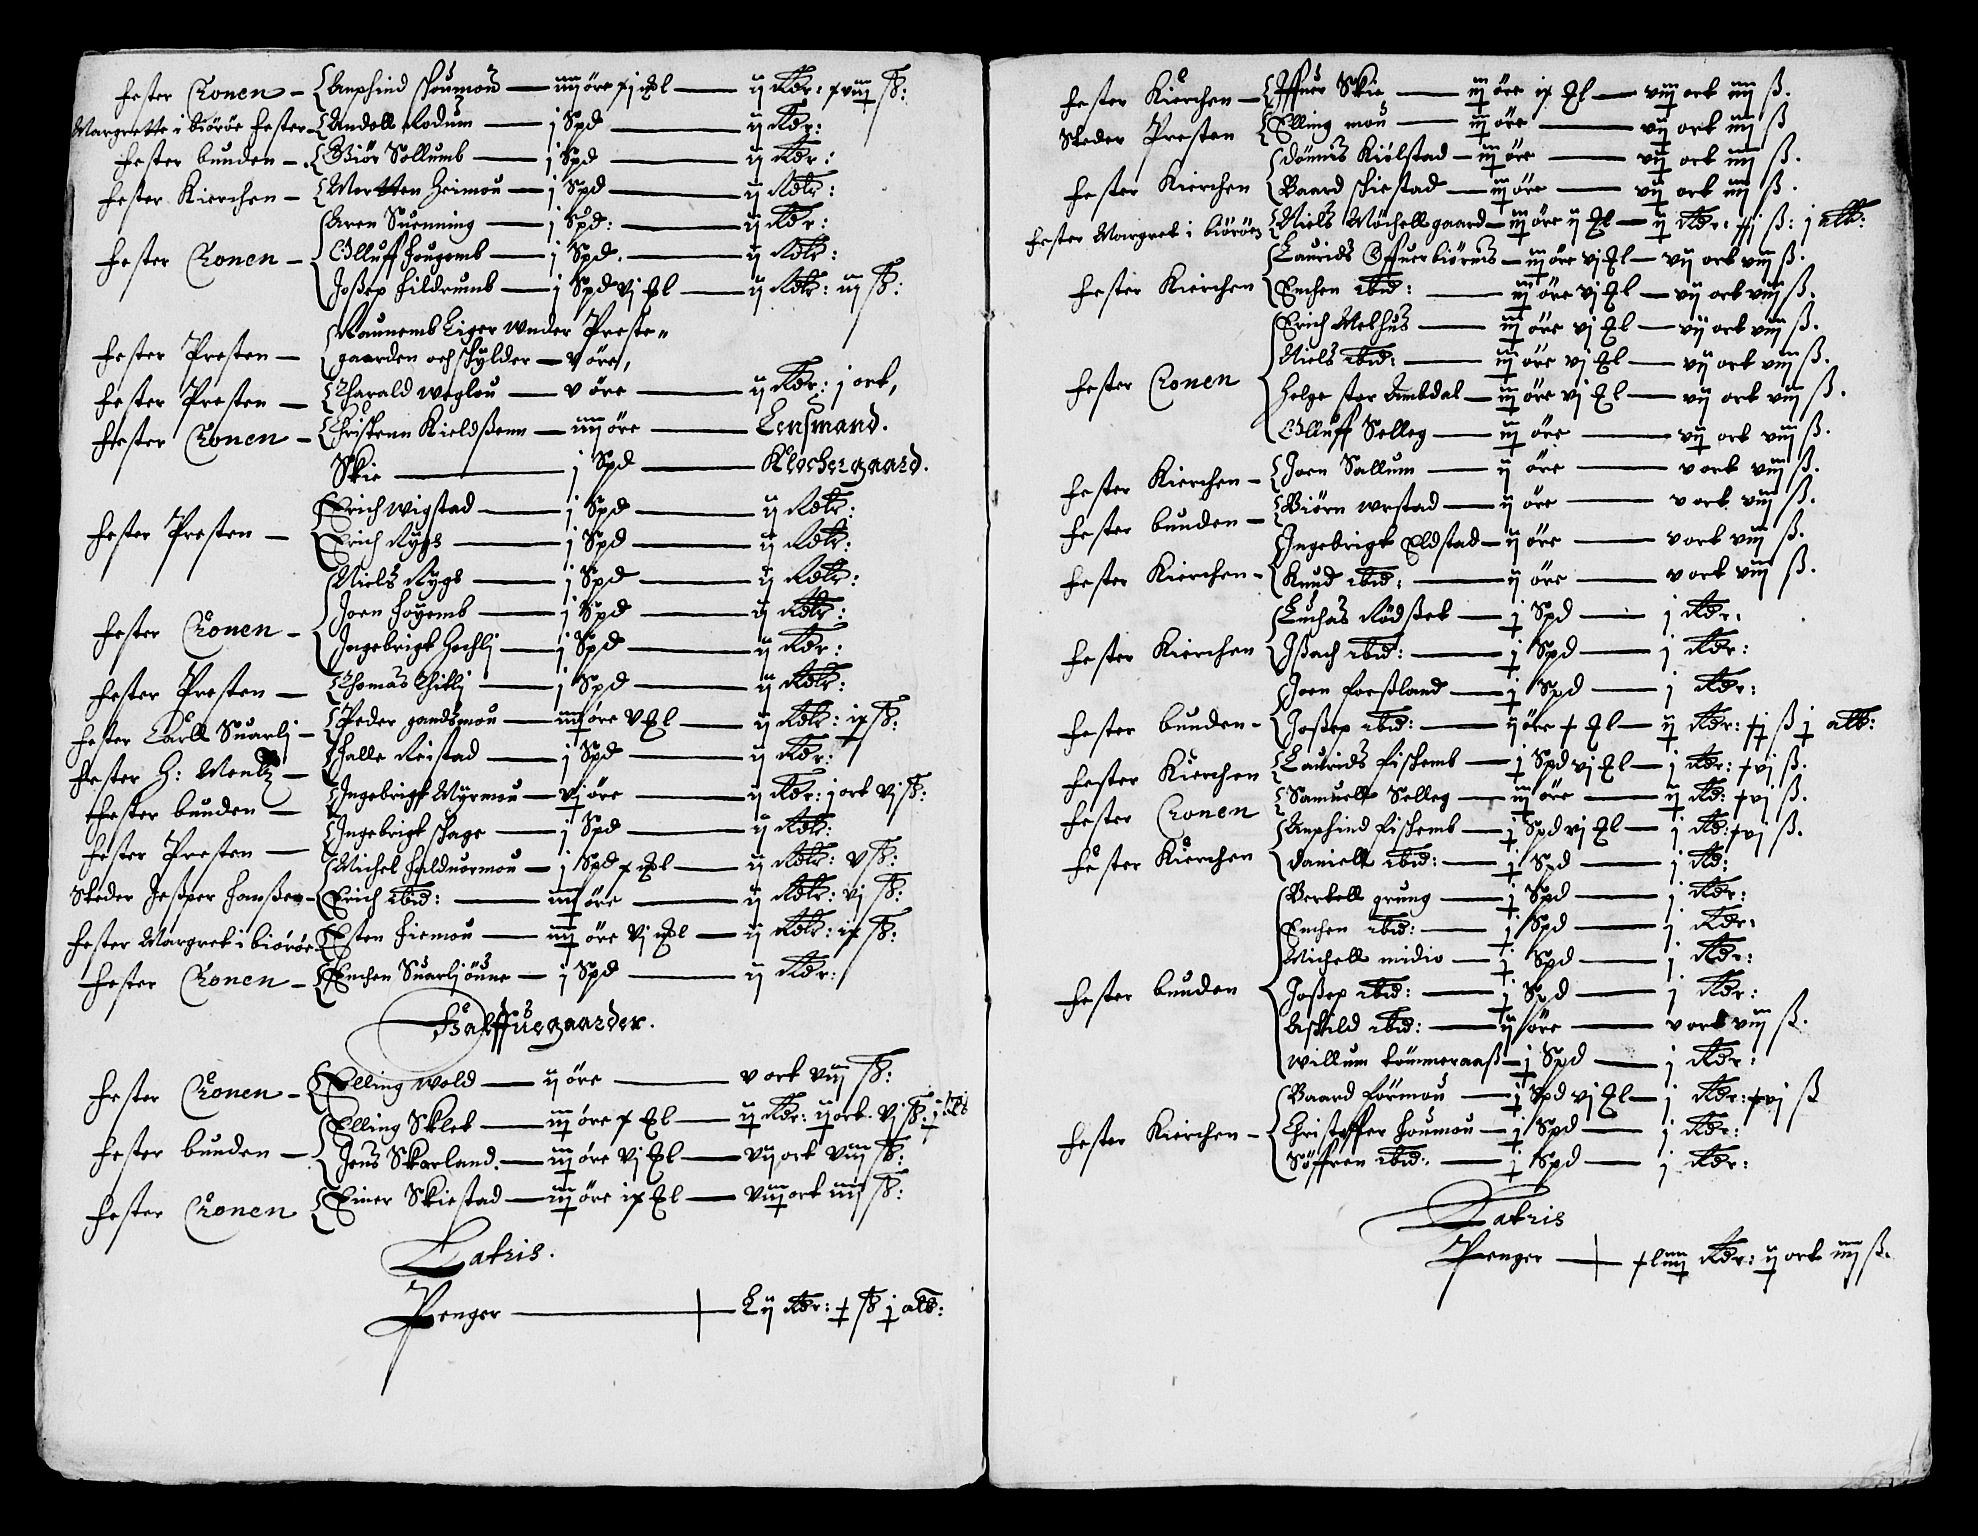 hester Cronen – Anphind skoumou — iiij öre xj El — ij Rdr: xviij ß:
Margrette i biöröe hester – Andoll Rodum — j Spd — ij Rdr:
hester bunden – Biör Sollumb — j Spd — ij Rdr:
hester Kierchen – Mortten Heimou — j Spd — ij Rdlr:
Aren Suenning — j Spd: — ij Rdr:
hester Cronen – Olluff hougemb — j Spd. — ij Rdlr:
Joßep hildrumb — j Spd vj El — ij Rdlr: iij ß:
Raunemb Liger wnder Preste„
hester Presten – gaarden och skylder – v öre,
hester Presten – Harald weglou — v öre — ij Rdr: j ort,
hester Cronen – Christenn Kieldßenn — iiij öre — Lensmand.
Skie — j Spd — Klochergaard.
Erich wigstad — j Spd — ij Rdlr:
hester Presten – Erich Rygs — j Spd — ij Rdlr:
Niels Rygs — j Spd — ij Rdlr:
Joen höyemb — j Spd — ij Rdlr:
hester Cronen – Ingebrigt Hochlj — j Spd — ij Rdr:
hester Presten – Thomas Thitlj — j Spd — ij Rdlr:
hester Carll Suarlj – Peder gandsmou — iiij öre v El — ij Rdlr: ix ß:
hester H: Mentz – Halle Reistad — j Spd — ij Rdr:
hester bunden – Ingebrigt Myrmou — vj öre — ij Rdr: j ort vj ß:
hester Presten – Ingebrigt skage — j Spd — ij Rdlr:
Michel Haldnormou — j Spd x El — ij Rdlr: v ß:
Steder Jeßper Hanßen – Erich ibid: — iiij öre — ij Rdlr: vj ß:
hester Margret i biöröe – Esten hiemou — iiij öre vj El — ij Rdlr: ix ß:
hester Cronen – Enchen Suarljöune — j Spd — ij Rdr:
Halffuegaarder.
hester Cronen – Elling wold — ij öre — v ort viij ß:
Elling Sklet — iij öre x El — ij Rdr: ij ort vj ß. j alb
hester bunden – Jens Skarland. — iij öre vj El — vij ort viij ß:
hester Cronen Einer Skiestad — iij öre ix El — viij ort iiij ß:
Latris.
Penger — Lij Rdr: x ß j alb:
hester Kierchen – Iffuer Skie — iij öre ix El — viij ort iiij ß.
Steder Presten Elling mou — iij öre — vij ort iiij ß
Dönnis Kiölstad – iij öre — vij ort iiij ß.
hester Kierchen Baard skiestad — iij öre — vij ort iiij ß.
hester Margret i biöröe Niels Möchellgaard – iij öre ij El — ij Rdr: xj ß: j alb:
Laurids Offuerbiörnis – iij öre vj El – vij ort viij ß.
hester Kierchen Enchen ibid: — iij öre vj El — vij ort viij ß.
Erich Melhus — iij öre vj El — vij ort viij ß.
Niels ibid: — iij öre vj El — vij ort viij ß.
hester Cronen Helge stor Ambdal – iij öre vj El — vij ort viij ß.
Olluff Solleg — iij öre — vij ort viij ß.
hester Kierchen – Joen Sallum — ij öre — v ort viij ß.
hester bunden – Biörn wrstad — ij öre — v ort viij ß.
Ingebrigt Eldstad – ij öre — v ort viij ß.
hester Kierchen – Knud ibid: — ij öre — v ort viij ß.
Luchas Rödßet — j Spd — j Rdr:
hester Kierchen Jßach ibid: — j Spd — j Rdr:
Joen forßland — j Spd — j Rdr:
hester bunden – Joßep ibid: — ij öre x El — ij Rdr: xj ß j alb:
hester Kierchen Laurids fiskemb — j Spd vj El — j Rdr: xvj ß.
hester Cronen Samuell Solleg — iij öre — ij Rd: xvj ß.
Anphind fiskemb — j Spd vj El — j Rd: xvj ß.
hester Kierchen Daniell ibid: — j Spd — j Rd:
Bertell grung — j Spd — j Rdr:
Enchen ibid: — j Spd — j Rdr:
Michell midio — j Spd — j Rdr:
hester bunden Joßep ibid: — j Spd — j Rdr:
Askild ibid: — ij öre — v ort viij ß.
willum tömmeraaß – j Spd — j Rdr:
Baard Förmou — j Spd vj El — j Rdr: xvj ß
hester Kierchen – Christoffer houmou — j Spd — j Rdr:
Söffren ibid: — j Spd — j Rdr:
Latris
Penger — xliij Rdr: ij ort iiij ß.